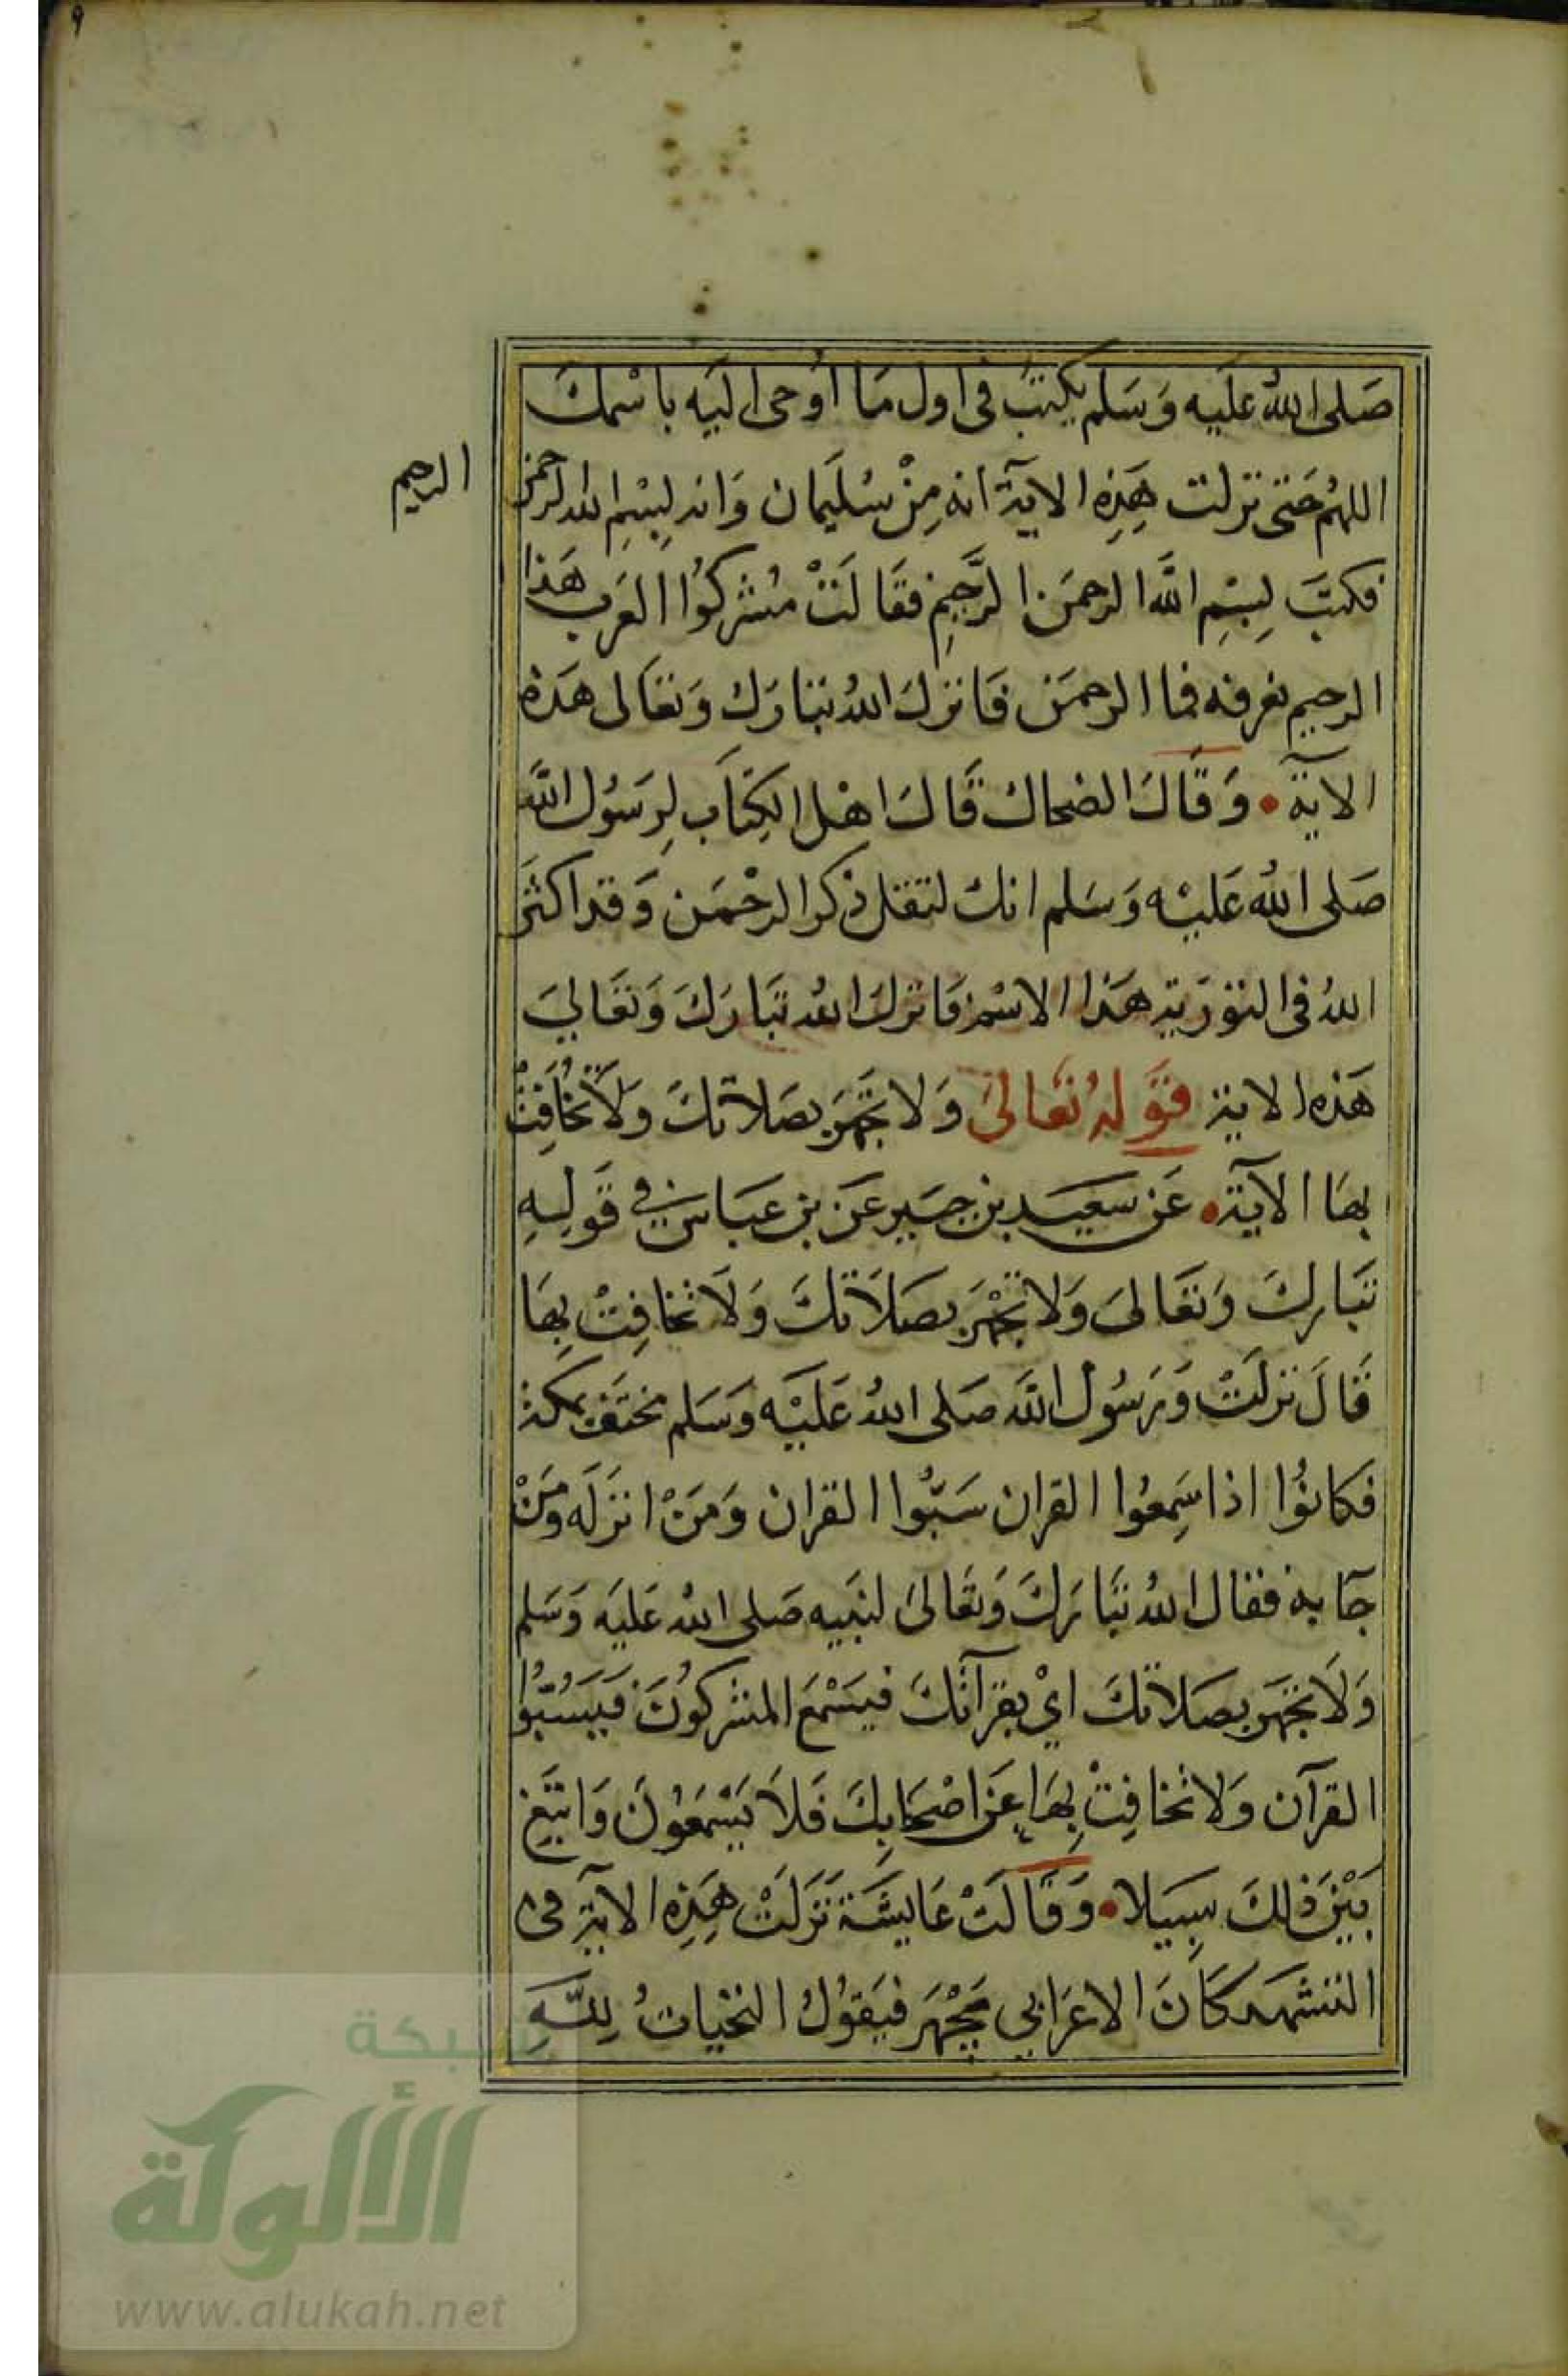 ٩
صَلى اللهُ علَيه وَسَلم يكتبُ فى اول مَا اُوحى اليَه باسْمكَ
اللهُم حَتى نزلت هَذِهِ الايَة انه مِنْ سُليَمان وَانه لبِسْمِ الله الرحمن
الرحيم
فكتبَ لبِسْمِ اللَّه الرحمَن الرَّحِيمِ فقَالَتْ مُشركوُا العَرب هَذا
الرحيم نعرفه فما الرحمَن فَانزلَ اللهُ تبَارَك وَتعَالى هَذه
الاية • وَقَالَ الضحاك قَالَ اهْل الكِتَاب لِرَسُول اللَّه
صَلى اللهُ عَليْه وَسَلم انك لتقل ذكر الرحْمَن وَقد اكثر
اللهُ فى التوْرَيةِ هَذا الاسْم فَانزلَ اللهُ تبَارَكَ وَتعَالىَ
هَذه الاية قَوَلهُ تعَالىَ وَلا تجهَر بصَلاتكَ وَلَا تخَافِتْ
بهَا الايَة • عَن سَعيَد بن جبَير عَن بن عبَاس فى قَولِهِ
تبَاركَ وَتعَالىَ وَلا تجْهَر بصَلَاتكَ وَلَا تخافِتْ بِهَا
قَالَ نزلَتْ وَرَسُول اللَّه صَلى اللهُ عَليْه وَسَلم مختفٍ بمكة
فكانوُا اذا سَمِعوُا القران سَبُّوا القران وَمَنْ انزَله وَمَنْ
جَآ به فقال اللهُ تبَارَكَ وَتعَالىَ لنبَيه صَلى الله عَليَه وَسَلم
وَلَا تجْهَر بصَلَاتكَ ايْ بقرآتكَ فيَسْمَع المشركوُنَ فيَسُبُّوا
القرآن وَلا تخافِتْ بِهَا عَن اصْحَابِكَ فَلَا يَسْمَعُونَ وَابْتَغِ
بَيْنَ ذلكَ سبِيَلا • وَقَالَتْ عَايشَة نَزَلَتْ هَذِهِ الايَة فى
التشهد كَانَ الاعْرَابي يَجْهَر فيَقوُلُ التحيات لِلَّهِ
شبكة
الألوكة
www.alukah.net